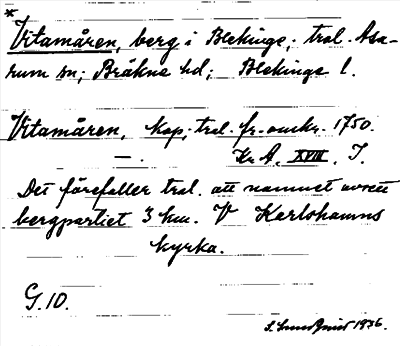 *
Vitamåren, berg i Blekinge; trol. Asa-
rum sn; Bräkne hd; Blekinge l.
Vitamåren, kop; trol. fr. omkr. 1750.
— . Kr. A. XVIII. J.
Det förefaller trol. att namnet avsett
bergpartiet 3 km. V Karlshamns
kyrka.
G. 10.
1936.